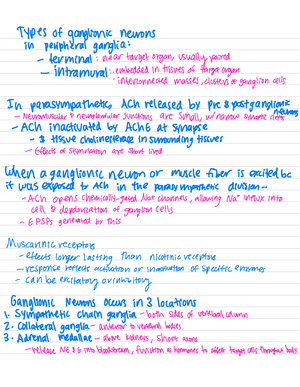 Types of ganglionic neurons
in peripheral ganglia:
- terminal: near target organ, usually paired
- intramural: embedded in tissues of target organ
- interconnected masses, clusters of ganglion cells
In parasympathetic, ACh released by pre & postganglionic neurons
- Neuromuscular & neuroglandular junctions are small, w/ narrow synaptic clefts
- ACh inactivated by AChE at synapse
- & tissue cholinesterase in surrounding tissues
- Effects of stimulation are short lived
When a ganglionic neuron or muscle fiber is excited bc
it was exposed to ACh in the parasympathetic division...
- ACh opens chemically-gated Na+ channels, allowing Na+ influx into
cell & depolarization of ganglion cells
- EPSPs generated by this
Muscarinic receptors
- effects longer lasting than nicotinic receptors
- response reflects activation or inactivation of specific enzymes
- can be excitatory or inhibitory
Ganglionic Neurons occurs in 3 locations
1. Sympathetic chain ganglia - both sides of vertebral column
2. Collateral ganglia - anterior to vertebral bodies
3. Adrenal medullae - above kidneys, short axons
- release NE & E into bloodstream, function as hormones to affect target cells throughout body